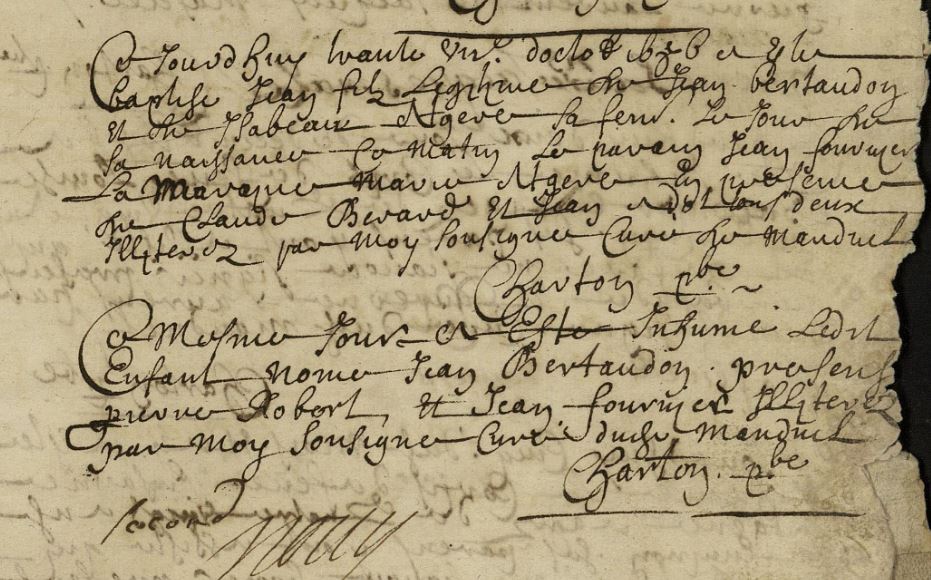 Ce Jourdhuy trante un.e doctob 1636 a este
baptise Jean filz Legitime de Jean bertaudon
Et de Isabeau Ngere sa fem. Le Jour de
sa naissance Ce matin Le parain Jean fournier
La Maraine Marie Ngere En presence
de Claude Berard Et Jean tous deux
Illiterez par Moy soussigne Cure de Manduel
Charton pbre
Ce Mesme Jour a Este Inhumé Ledit
Enfant nomé Jean Bertaudon . presens
pierre Robert, Et Jean fournier Illiterez
par Moy soussigne Curé dudt Manduel
Charton . pbre
second